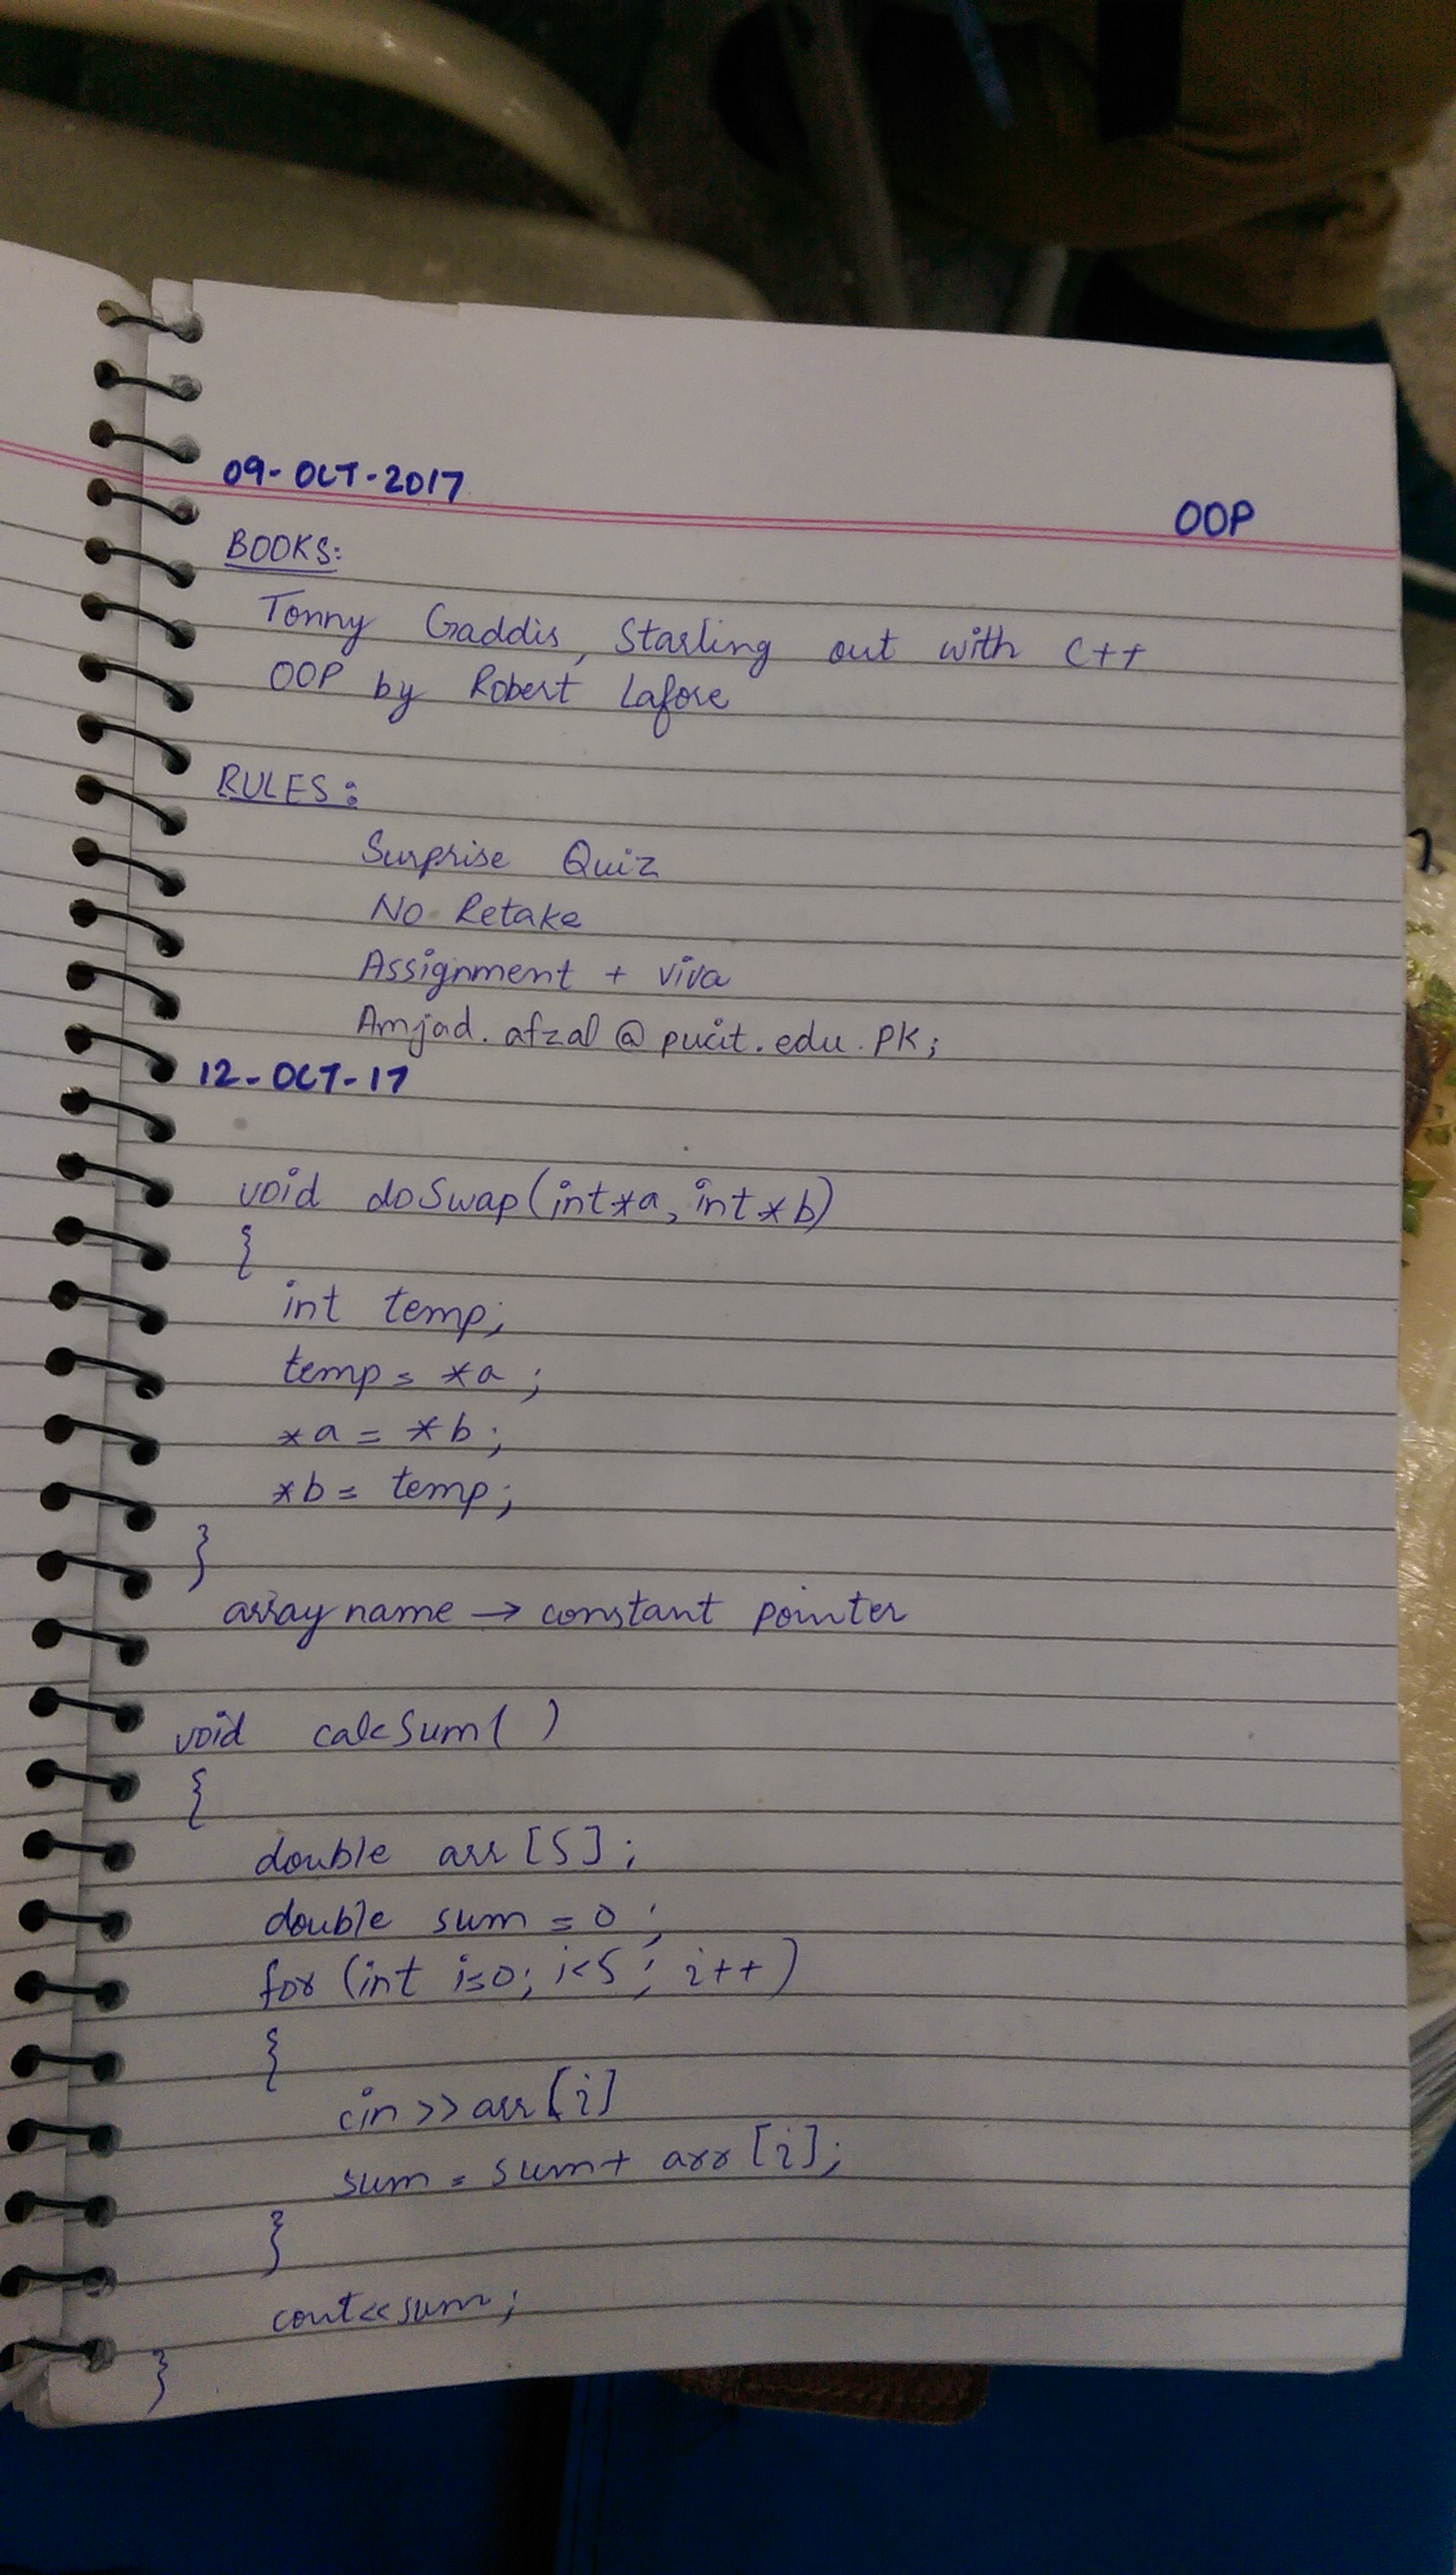 09-OCT-2017
OOP
BOOKS:
Tonny Gaddis, Starling out with C++
OOP by Robert Lafore
RULES:
Surprise Quiz
No Retake
Assignment + viva
Amjad.afzal@pucit.edu.pk;
12-OCT-17
void doSwap(int*a, int*b)
{
int temp;
temp = *a;
*a = *b;
*b = temp;
}
array name → constant pointer
void calcSum( )
{
double arr[5];
double sum = 0;
for (int i=0; i<5; i++)
{
cin>>arr[i]
sum = sum + arr[i];
}
cout<<sum;
}